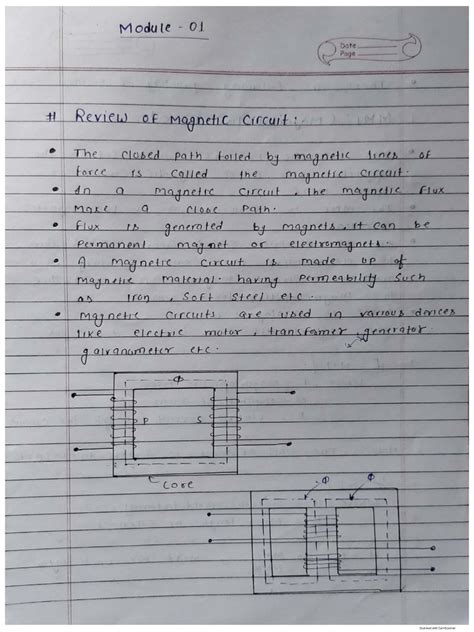 Module - 01
Date
Page
# Review of Magnetic Circuit:
• The closed path foiled by magnetic lines of
force is called the magnetic circuit.
• In a magnetic circuit, the magnetic flux
make a close path.
• flux is generated by magnets, it can be
permanent magnet or electromagnets.
• A magnetic circuit is made up of
magnetic material having permeability such
as iron, soft steel etc.
• Magnetic circuits are used in various devices
like electric motor, transfamer, generator,
galvanometer etc.
Φ
P S
Core
Φ Φ